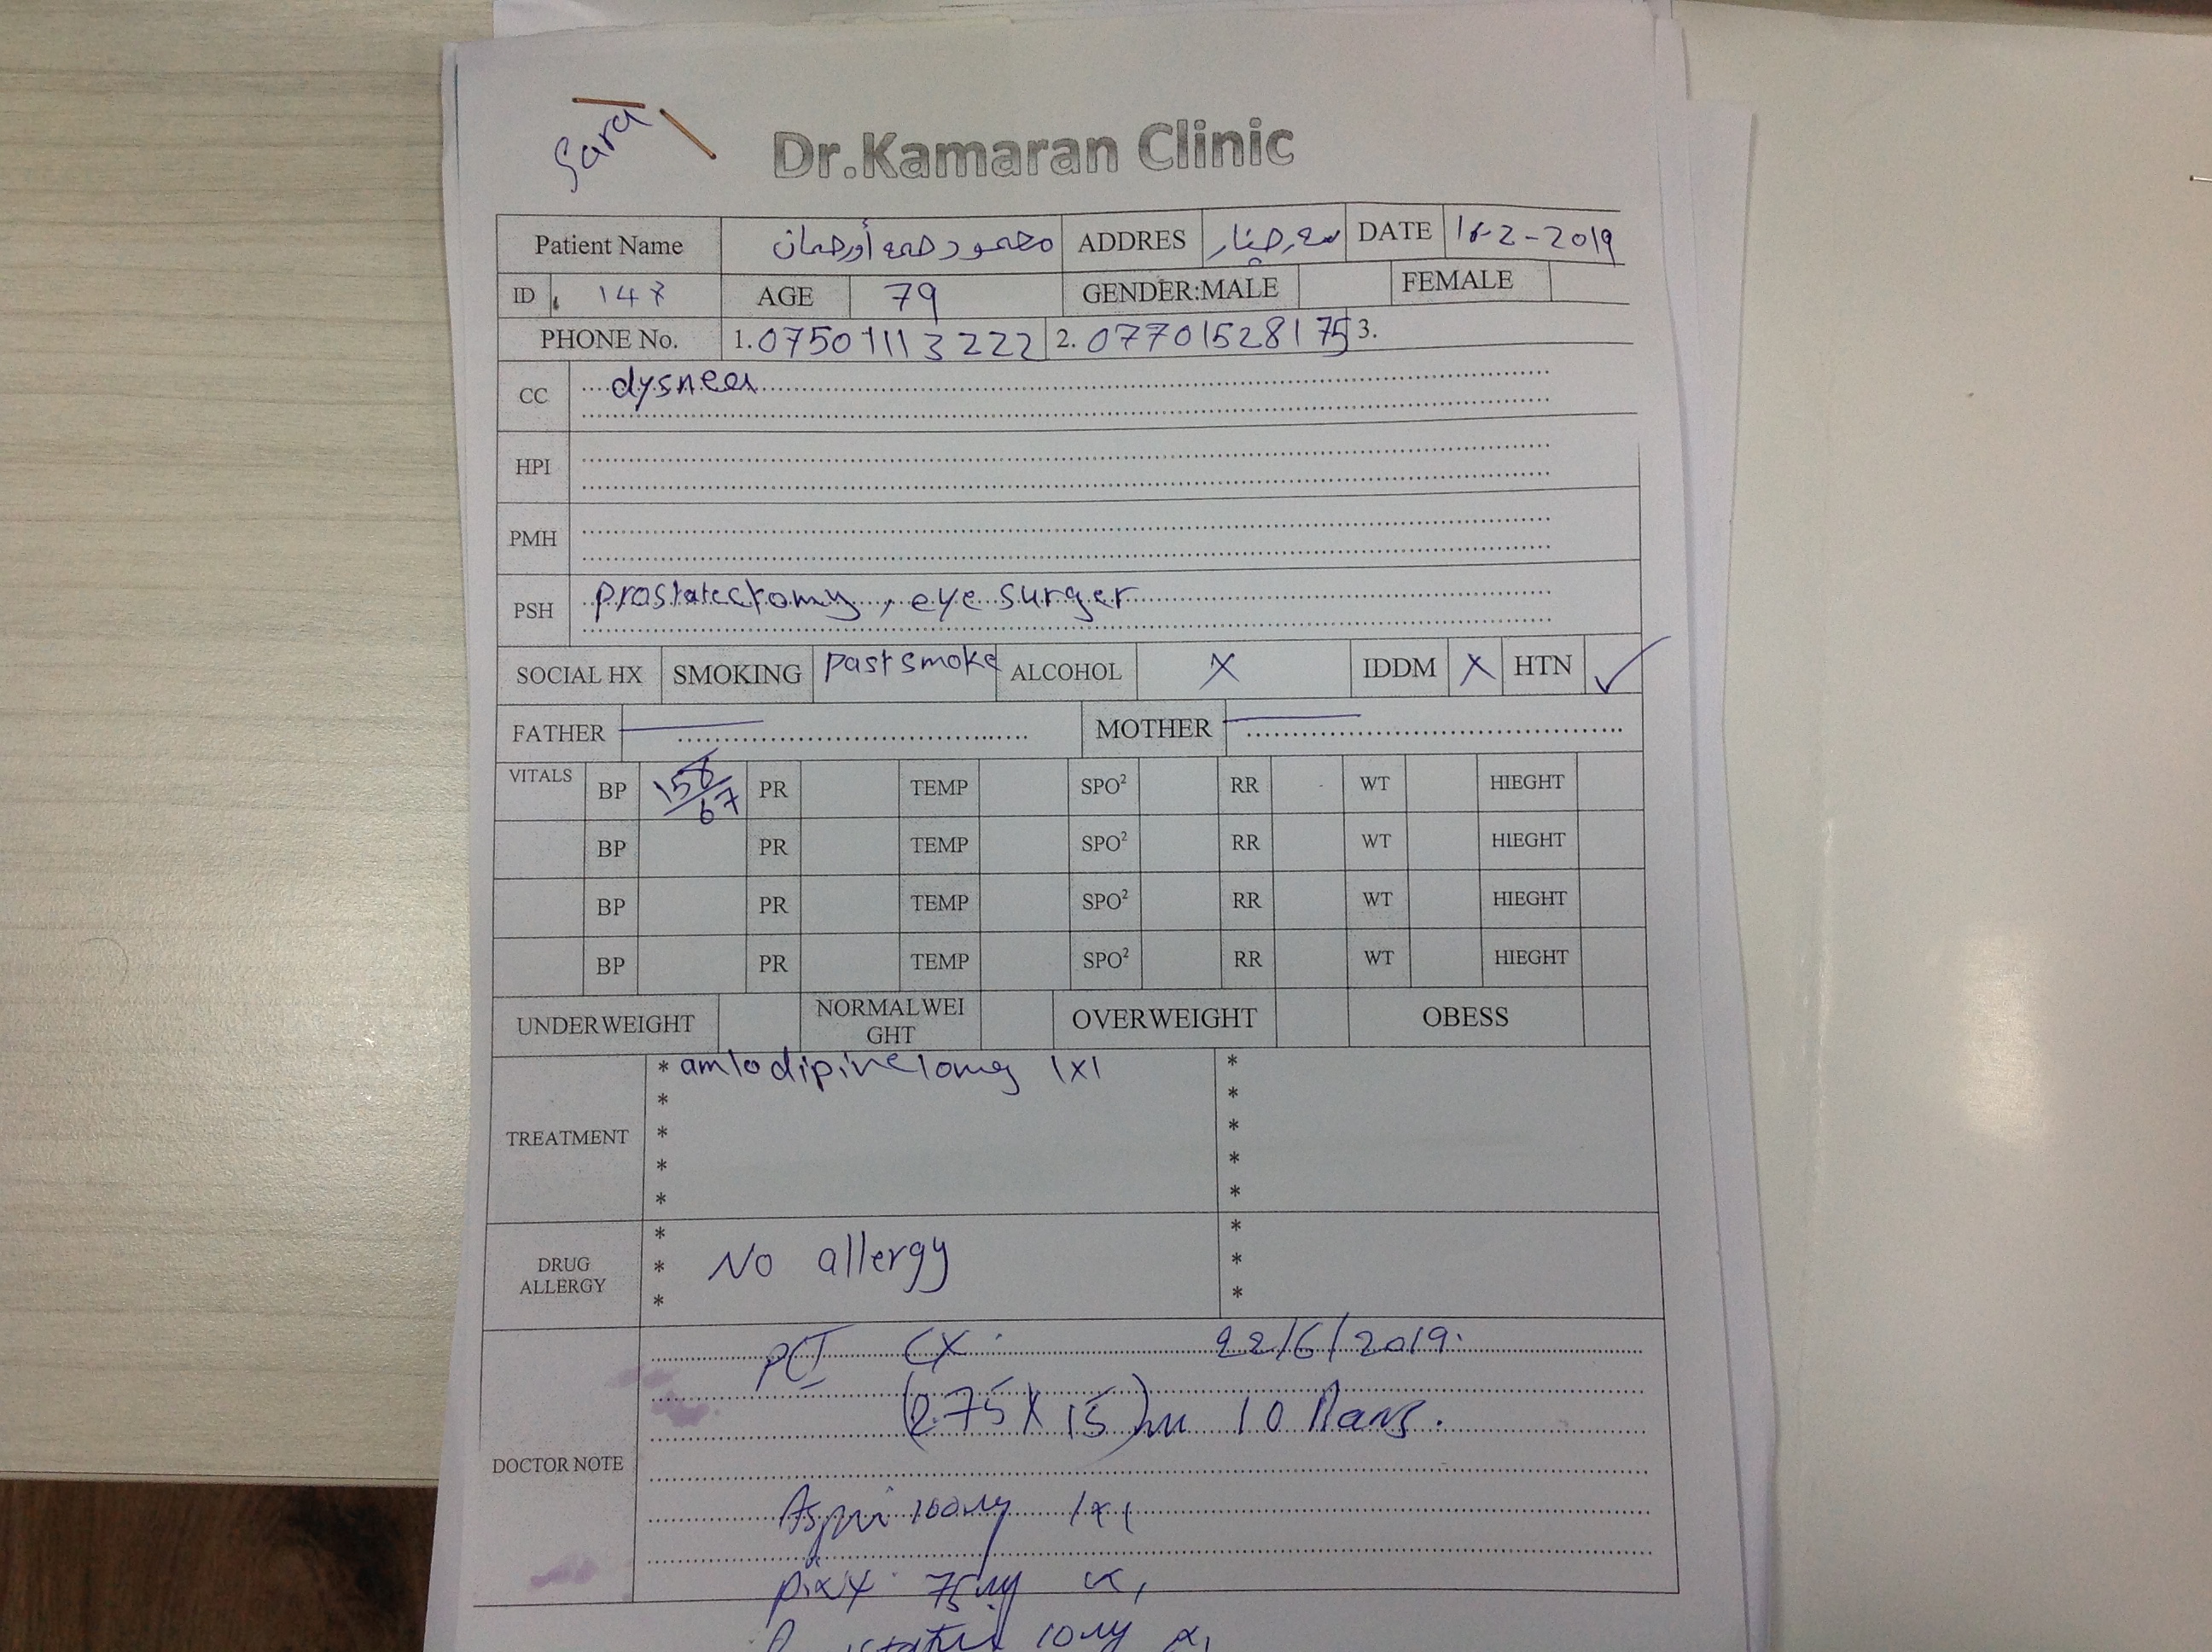 Sara
Dr.Kamaran Clinic
Patient Name محمود حمه أورحمان ADDRES سەرچنار DATE -2-2019
ID 147 AGE 79 GENDER:MALE FEMALE
PHONE No. 1. 07501113222 2. 07701528175 3.
CC dysnea
HPI
PMH
PSH prostatectomy, eye surger
SOCIAL HX SMOKING past smoke ALCOHOL X IDDM X HTN ✓
FATHER MOTHER
VITALS BP 158/67 PR TEMP SPO² RR WT HIEGHT
BP PR TEMP SPO² RR WT HIEGHT
BP PR TEMP SPO² RR WT HIEGHT
BP PR TEMP SPO² RR WT HIEGHT
UNDERWEIGHT NORMALWEI OVERWEIGHT OBESS
GHT
* amlodipine long 1x1 *
* *
TREATMENT * *
* *
* *
* *
DRUG ALLERGY * No allergy *
* *
PCI CX 22/6/2019
(2.75 X 15) 10
DOCTOR NOTE
100mg 1x1
75mg
10mg